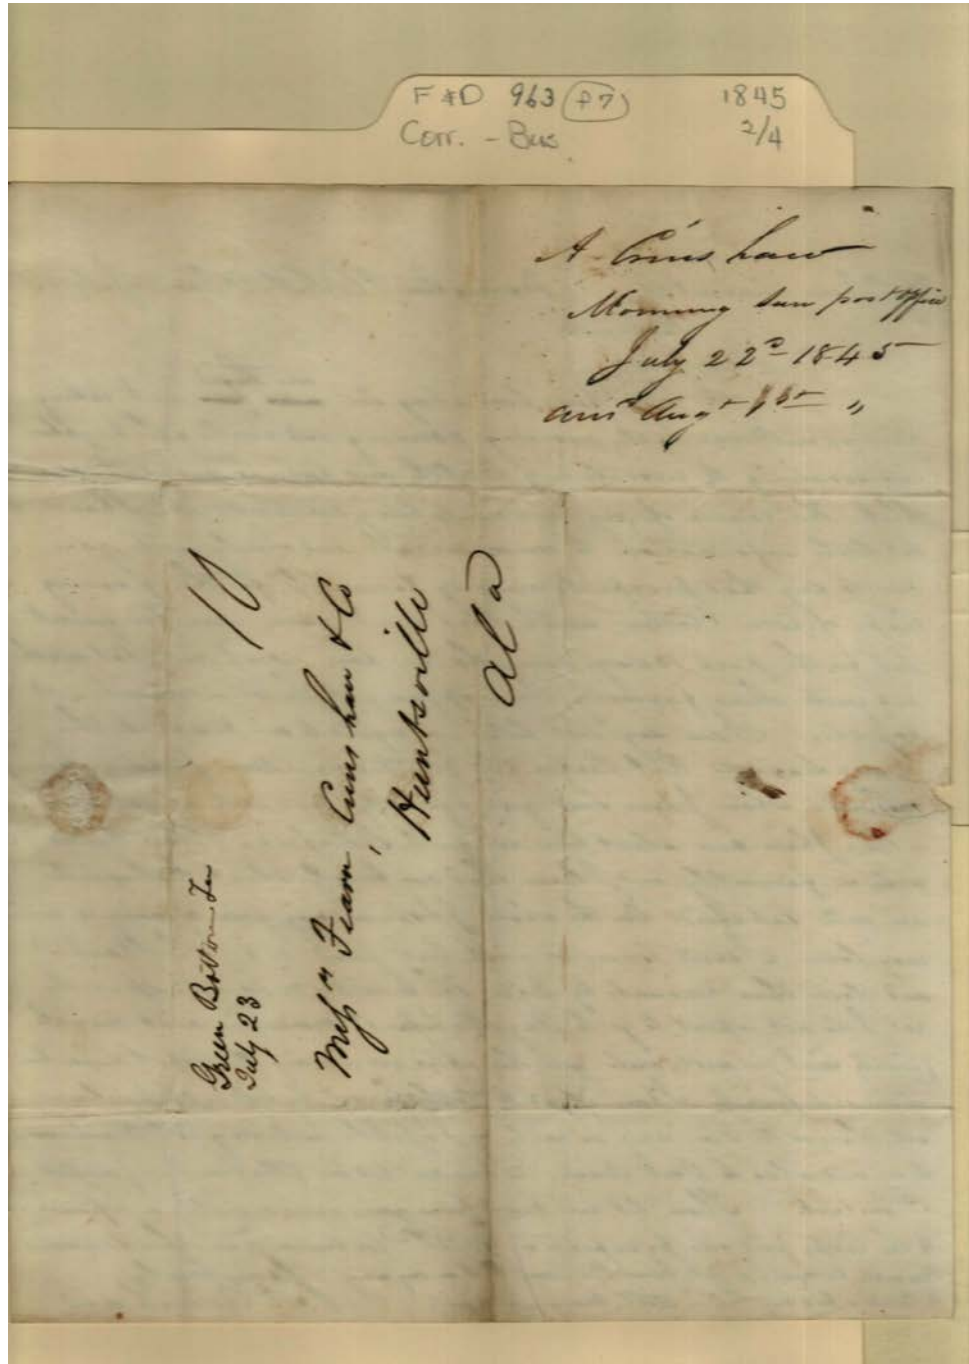 F&D 963 (f7) 1845
Corr. - Bus. 2/4
A. Crenshaw
Morning Sun post office
July 22d 1845
ansd Augt 1st "
10
Green Bottom Ten
July 23
Messrs Fearn, Crenshaw & Co
Huntsville
Ala